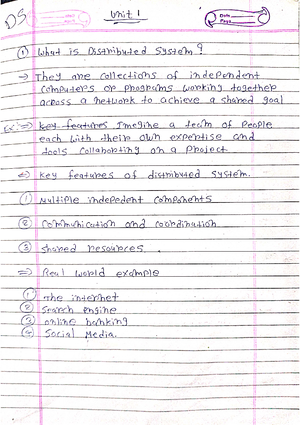 DS
Unit 1
① What is Distributed System?
→ They are collections of independent
computers or programs working together
across a network to achieve a shared goal
Ex:⇒ key features Imagine a team of people
each with their own expertise and
tools collaborting on a project.
⇐ key features of distributed system.
① Multiple indepedent components
② Communication and coordination
③ Shared resources.
⇒ Real world example
① The internet
② Search engine
③ online banking
④ Social Media.